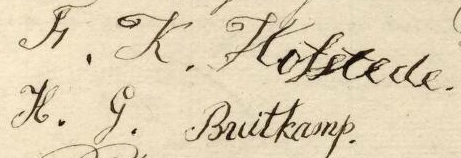 F. K. Hofstede.
H. G. Bruitkamp.